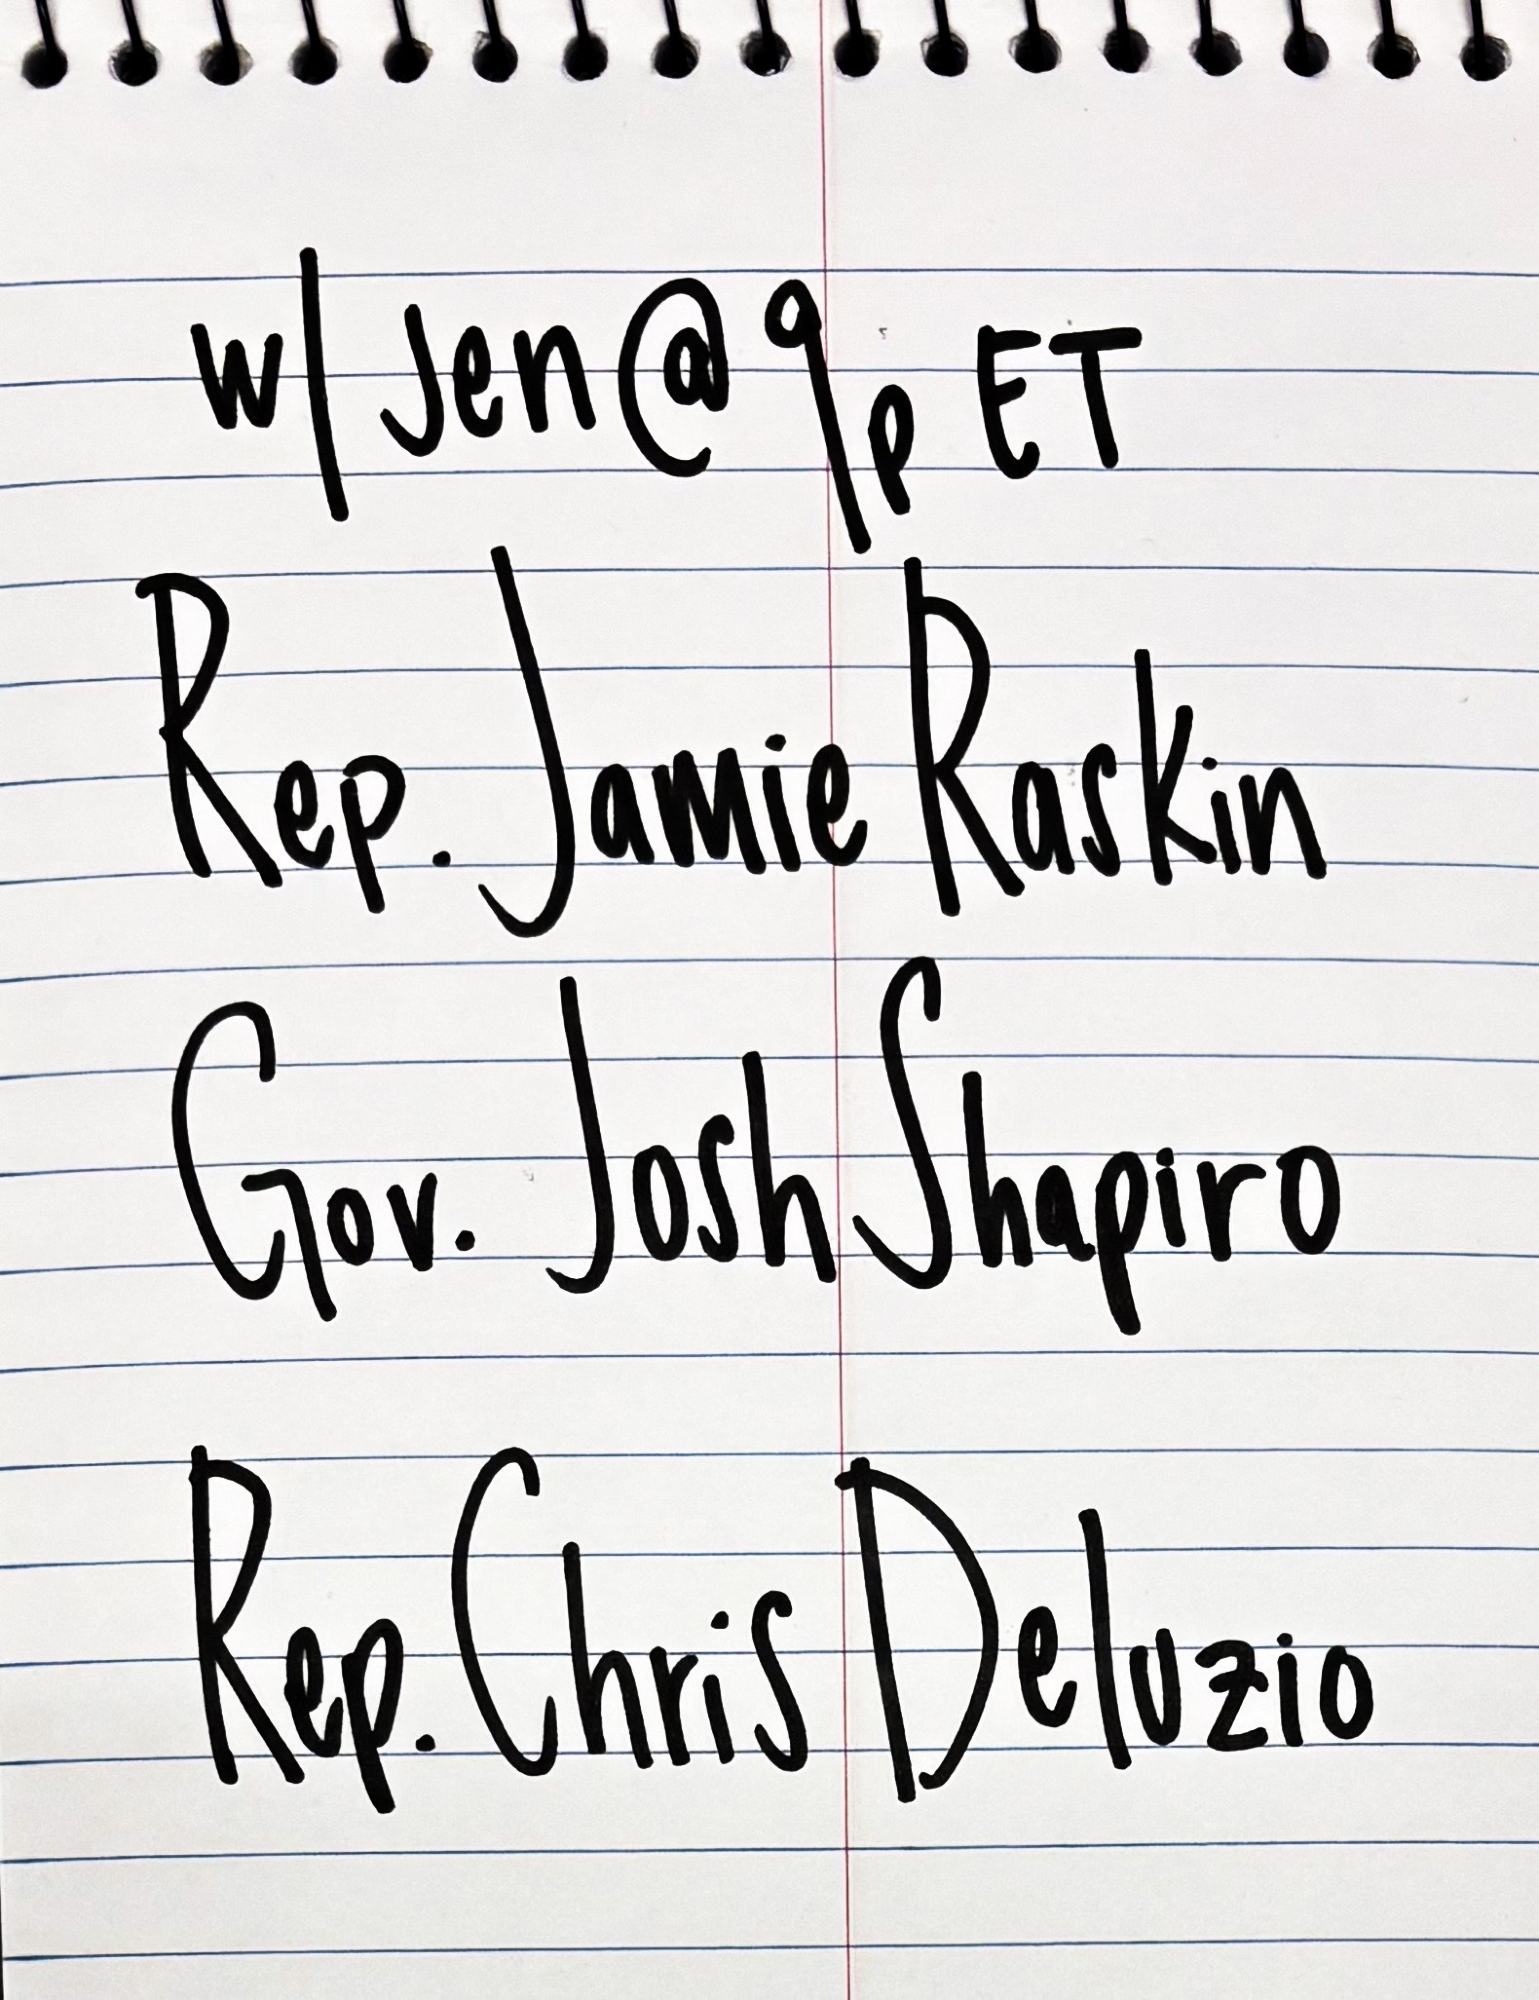 w/ Jen @ 9p ET
Rep. Jamie Raskin
Gov. Josh Shapiro
Rep. Chris Deluzio